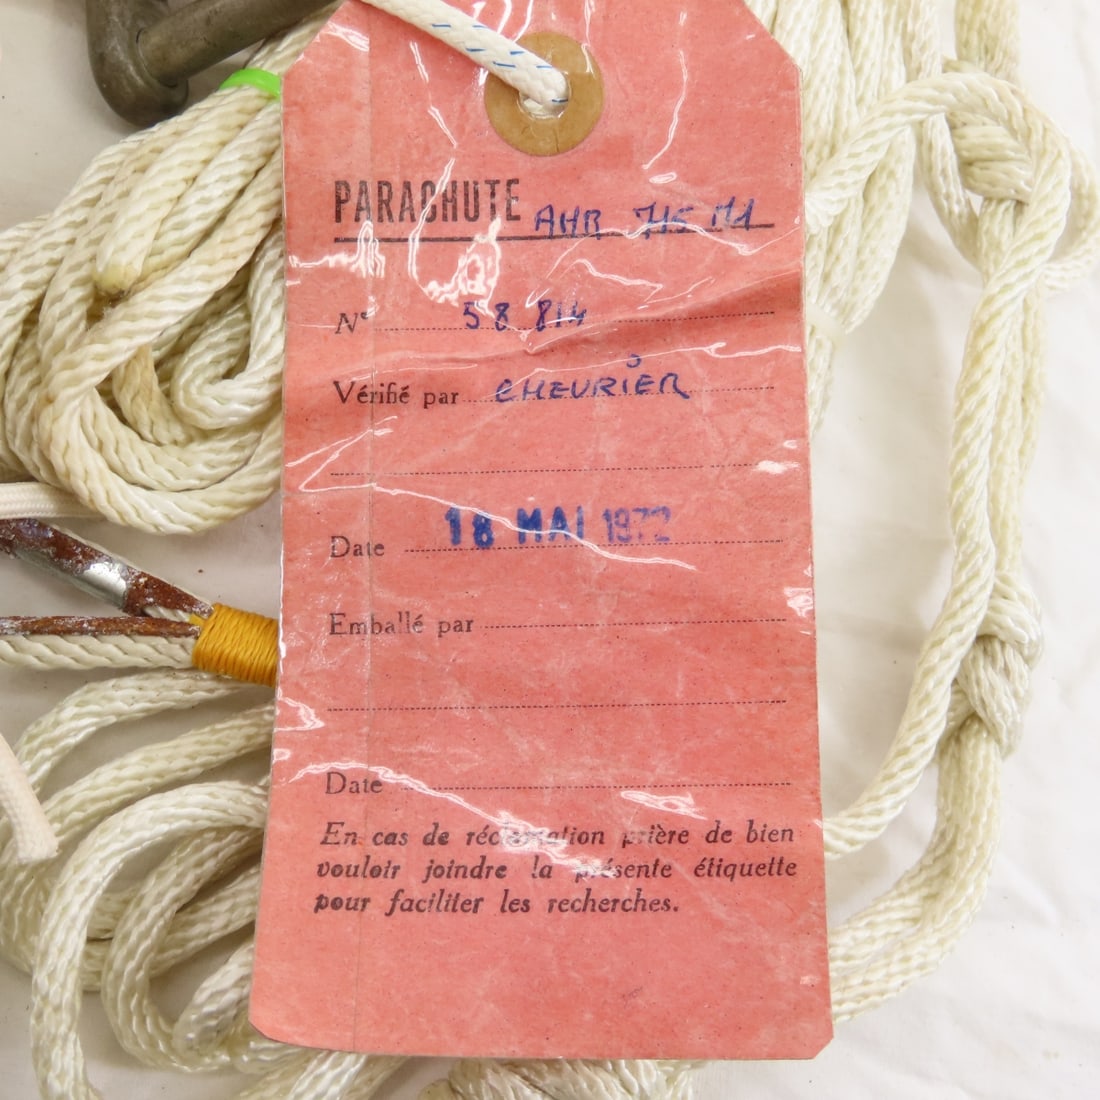 PARACHUTE AHR 715 M1
N° 58 814
Vérifié par CHEURIER
Date 18 MAI 1972
Emballé par
Date
En cas de réclamation prière de bien
vouloir joindre la présente étiquette
pour faciliter les recherches.